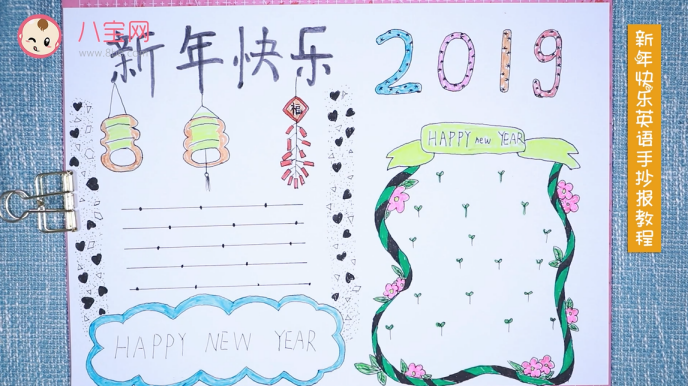 八宝网
新年快乐
2019
福
HAPPY new YEAR
HAPPY NEW YEAR
新年快乐英语手抄报教程